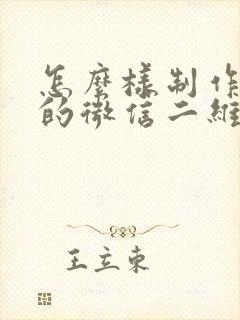 怎麼樣制作
的微信二維
王立東